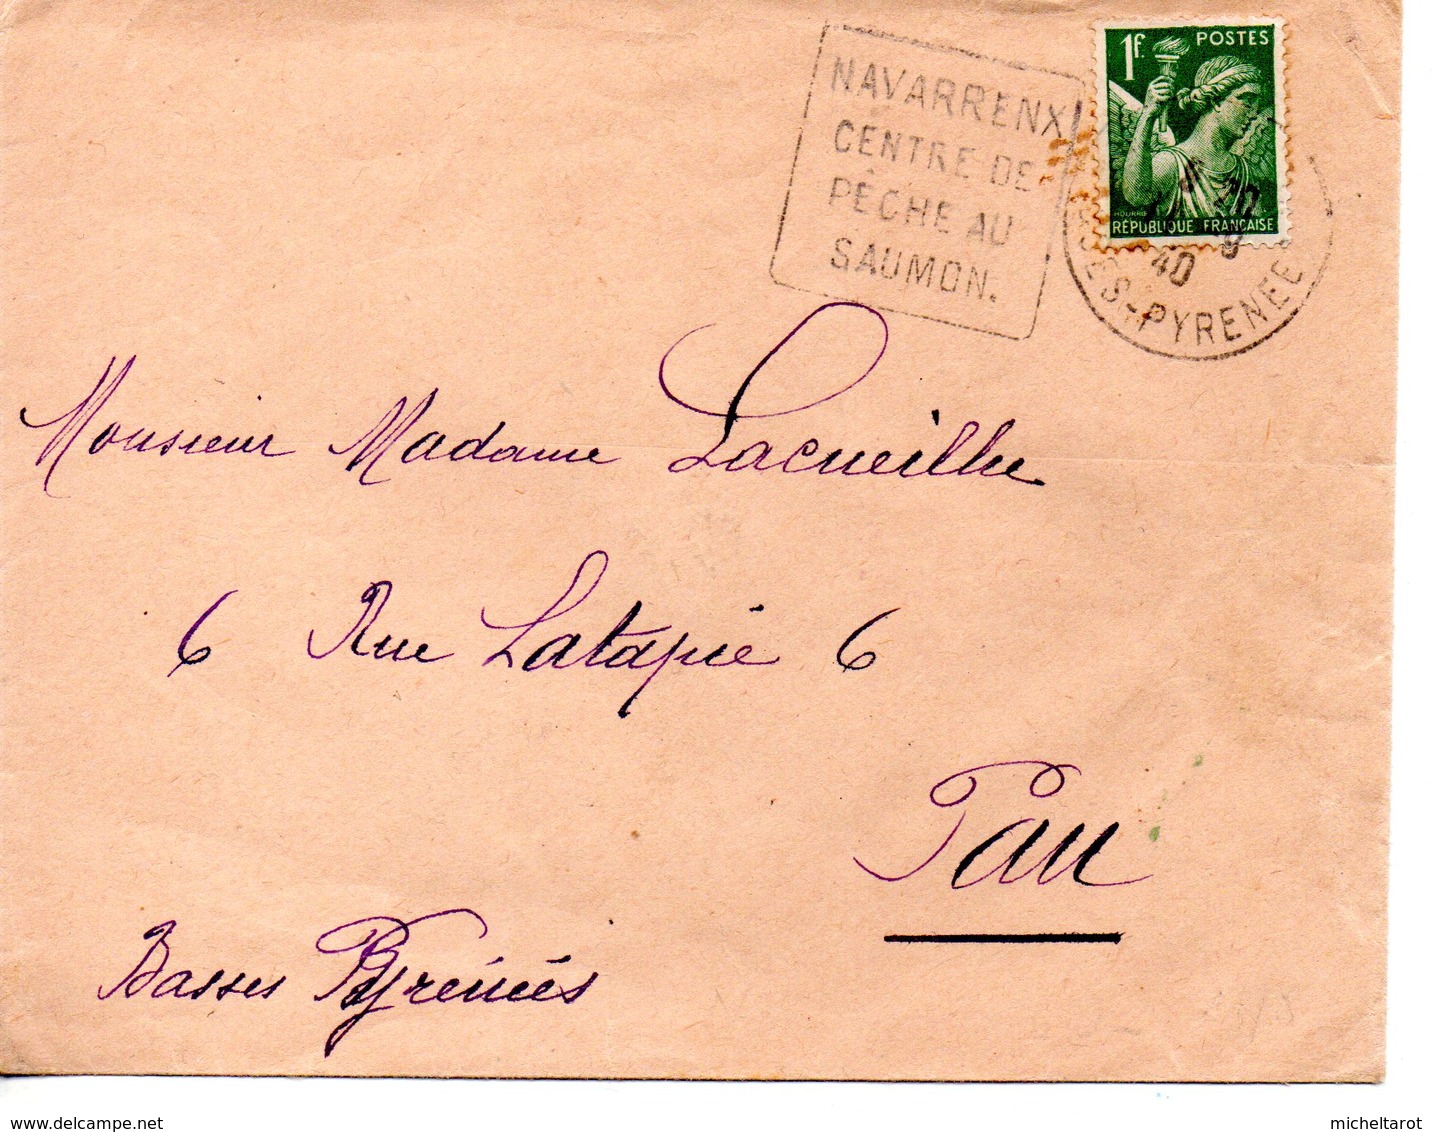 NAVARRENX
CENTRE DE
PÊCHE AU
SAUMON.
1F. POSTES
RÉPUBLIQUE FRANÇAISE
40
SES-PYRENEE
Monsieur Madame Lacueilhe
6 Rue Latapie 6
Pau
Basses Pyrénées
www.delcampe.net
micheltarot